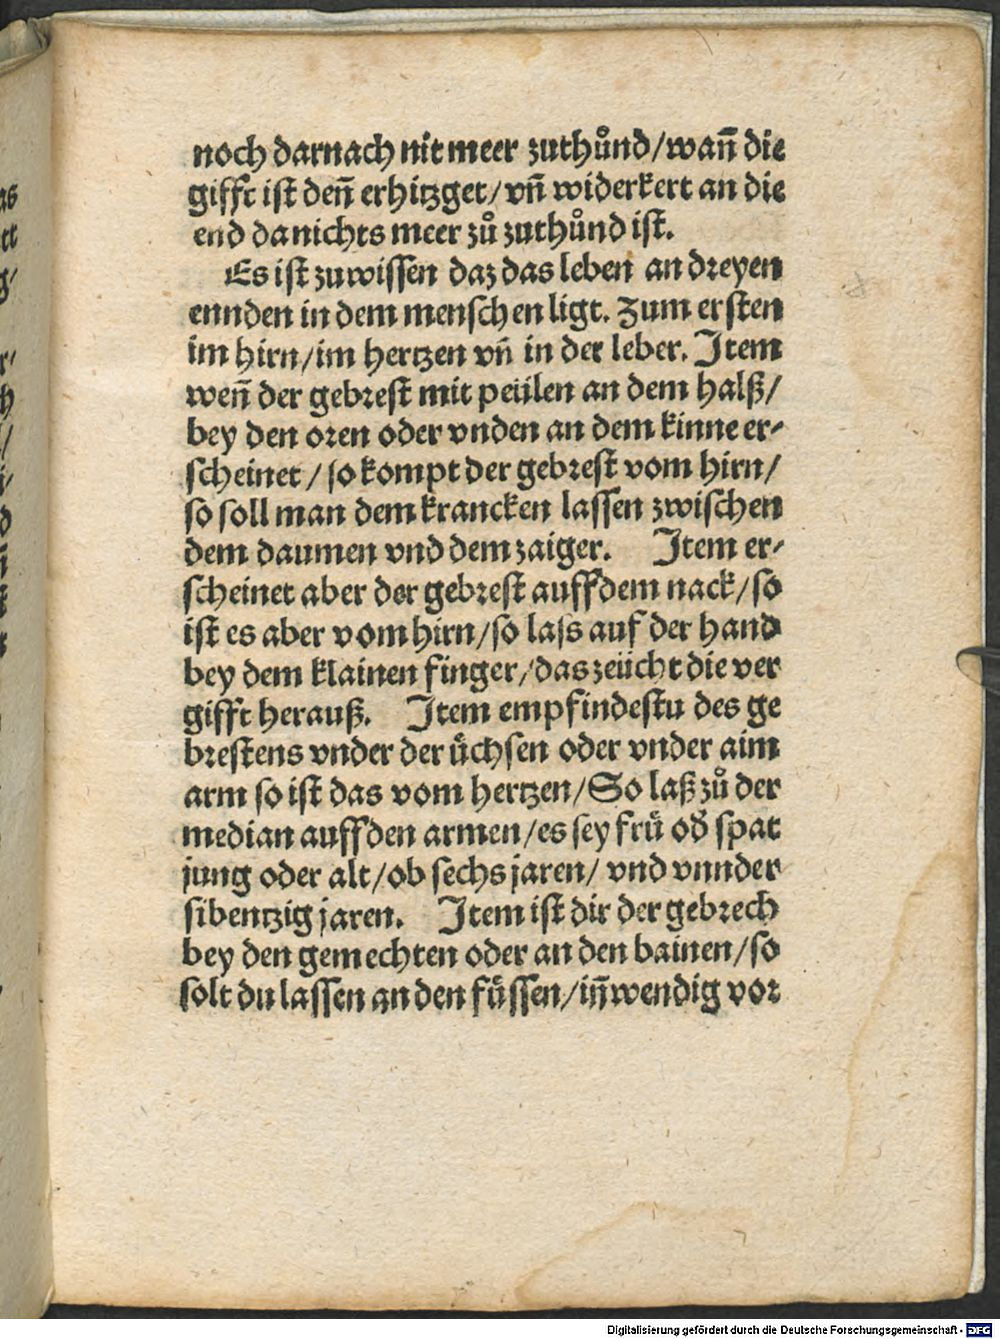 noch darnach nit meer zuthůnd/wañ die
gifft ist deñ erhitzget/vñ widerkert an die
end da nichts meer zů zuthůnd ist.
Es ist zuwissen daz das leben an dreyen
ennden in dem menschen ligt. Zum ersten
im hirn/im hertzen vñ in der leber. Item
weñ der gebrest mit peülen an dem halß/
bey den oren oder vnden an dem kinne er-
scheinet/so kompt der gebrest vom hirn/
so soll man dem krancken lassen zwischen
dem daumen vnd dem zaiger. Item er-
scheinet aber der gebrest auff dem nack/so
ist es aber vom hirn/so lass auf der hand
bey dem klainen finger/das zeücht die ver
gifft herauß. Item empfindestu des ge
brestens vnder der üchsen oder vnder aim
arm so ist das vom hertzen/So laß zů der
median auff den armen/es sey frü od̕ spat
jung oder alt/ob sechs jaren/vnd vnnder
sibentzig jaren. Item ist dir der gebrech
bey den gemechten oder an den bainen/so
solt du lassen an den füssen/iñwendig vor
Digitalisierung gefördert durch die Deutsche Forschungsgemeinschaft - DFG